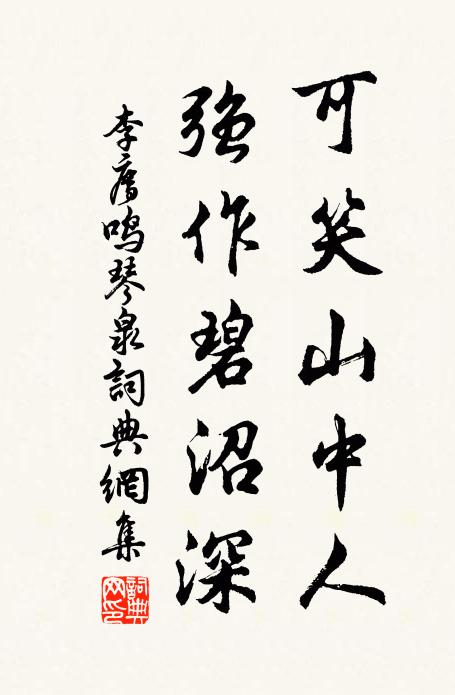 可笑山中人
強作碧沼深
李廌鳴琴泉詞典網集
詞典
网印